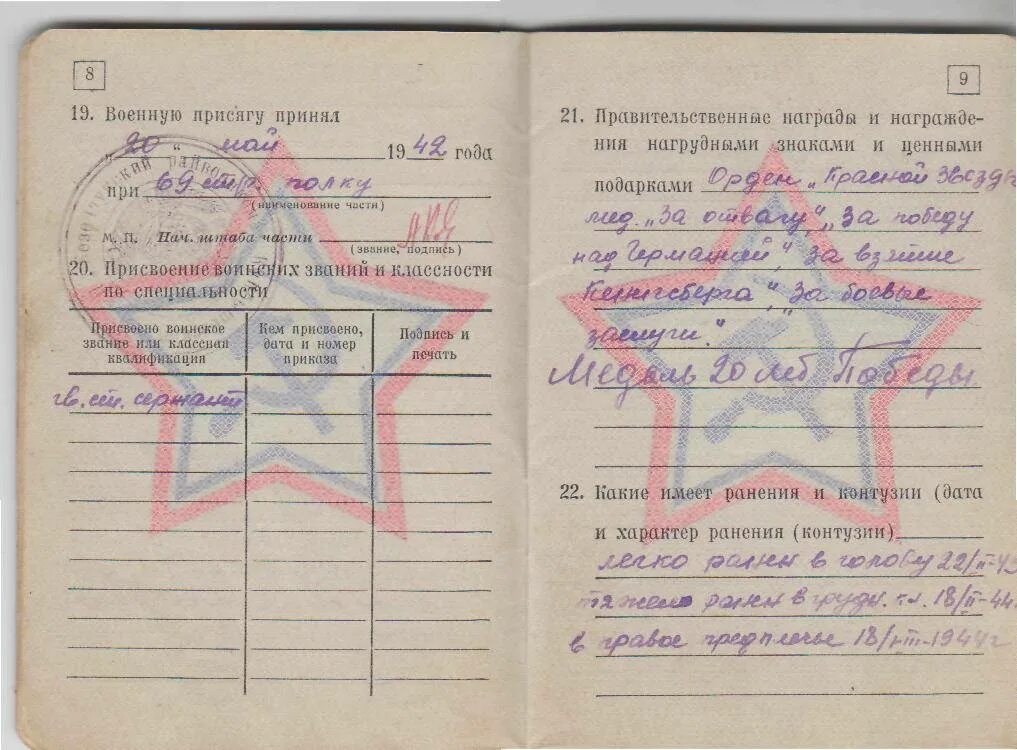 8
19. Военную присягу принял
„ 20 “ май 1942 года
при 69 стр. полку
(наименование части)
М. П. Нач. штаба части
(звание, подпись)
20. Присвоение воинских званий и классности
по специальности
Присвоено воинское звание или классная квалификация
Кем присвоено, дата и номер приказа
Подпись и печать
гв. ст. сержант
9
21. Правительственные награды и награжде-
ния нагрудными знаками и ценными
подарками Орден „Красной Звезды
мед. „За отвагу“, „За победу
над Германией“, За взятие
Кенигсберга“, „За боевые
заслуги“.
Медаль 20 лет Победы
22. Какие имеет ранения и контузии (дата
и характер ранения (контузии)
легко ранен в голову 22/II-43
тяжело ранен в грудь. кл. 18/II-44
в правое предплечье 18/III-1944г